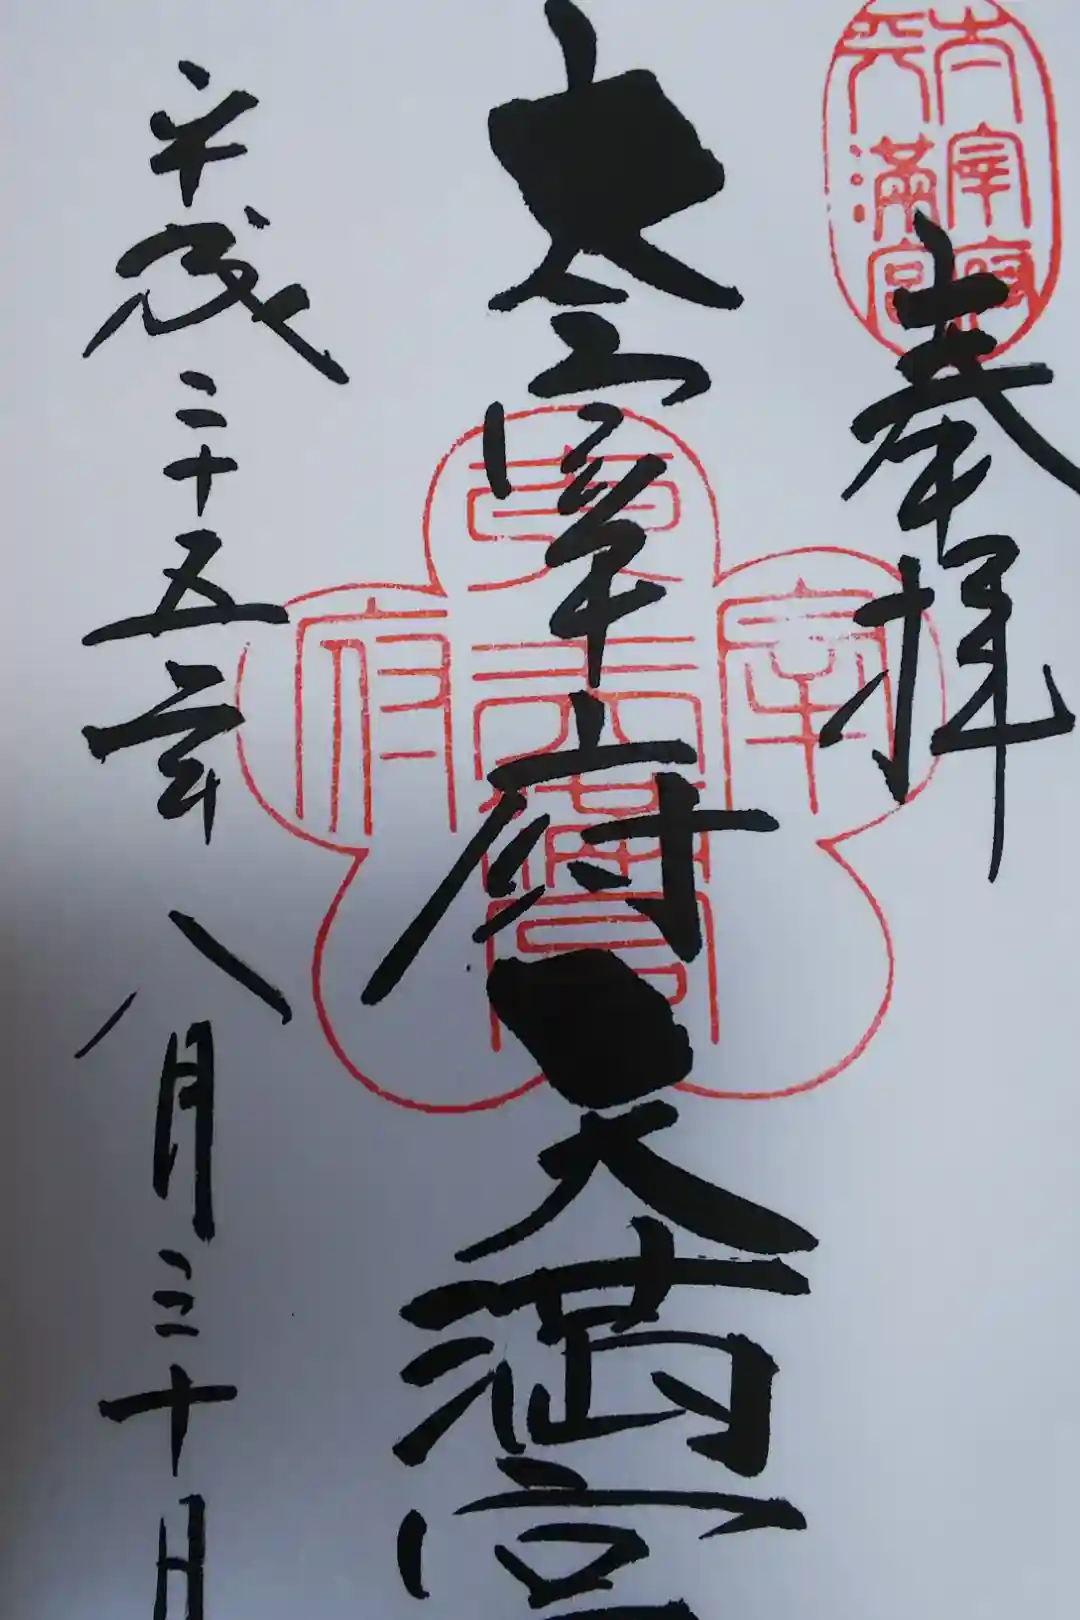 奉拝
太宰府天満宮
平成二十五年八月三十日
太宰府
天満宮
太宰府天満宮